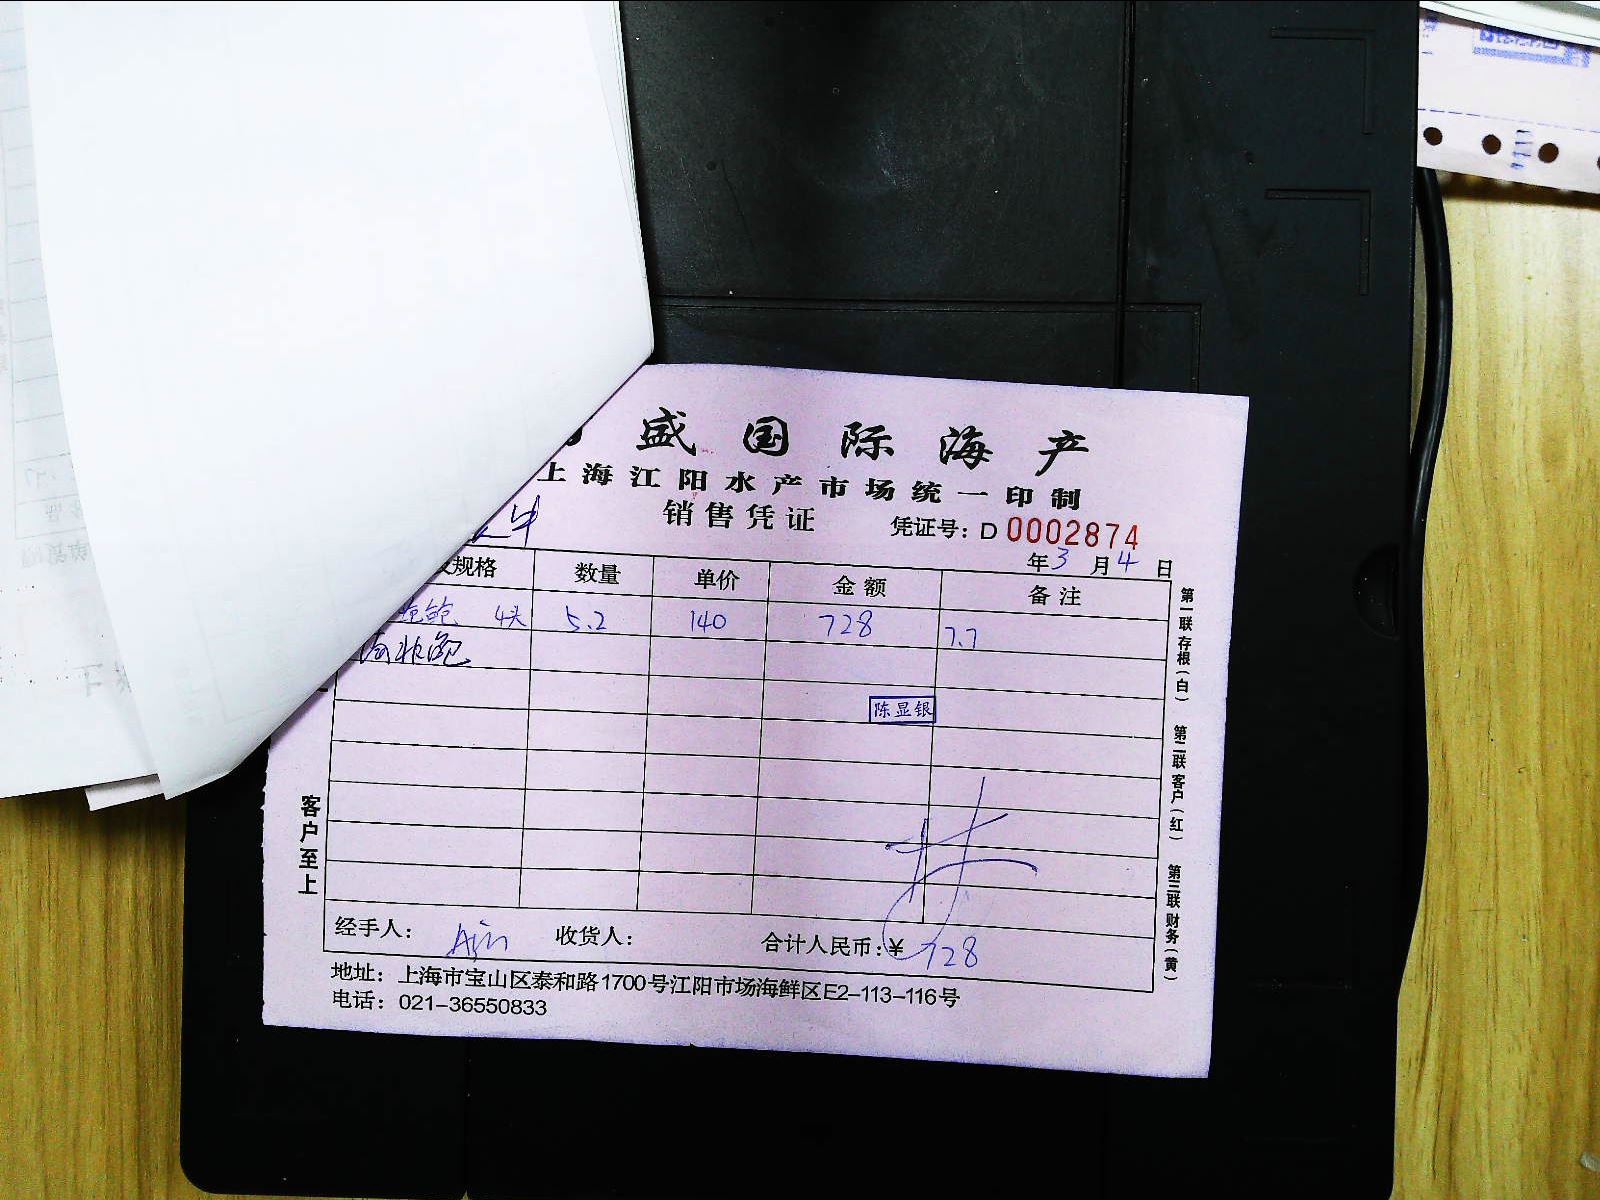 盛国际海产
上海江阳水产市场统一印制
销售凭证 凭证号：D 0002874
年3月4日
规格 数量 单价 金额 备注
鲍 4头 5.2 140 728 7.7
南非鲍
陈显银
客户至上
第一联存根（白） 第二联客户（红） 第三联财务（黄）
经手人： 收货人： 合计人民币：¥ 728
地址：上海市宝山区泰和路1700号江阳市场海鲜区E2-113-116号
电话：021-36550833